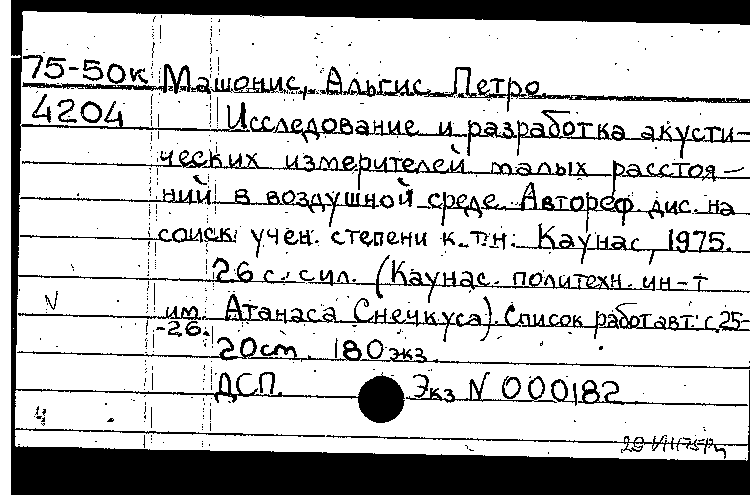 75-50к Машонис, Альгис Петро.
4204 Исследование и разработка акусти-
ческих измерителей малых расстоя-
ний в воздушной среде. Автореф. дис. на
соиск. учен. степени к.т.н. Каунас, 1975.
26 с. с ил. (Каунас. политехн. ин-т
V им. Атанаса Снечкуса). Список работ авт.: с. 25-
-26.
20 см. 180 экз.
ДСП. Экз N 000182
4